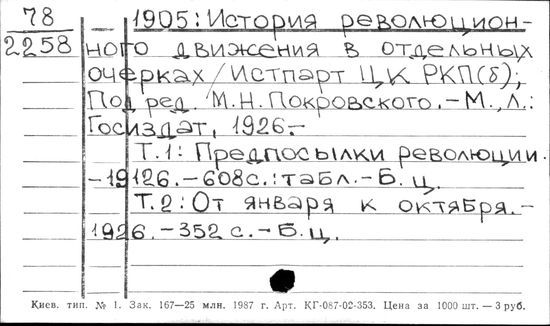 78
2258
1905: История революцион-
ного движения в отдельных
очерках / Истпарт ЦК РКП(б);
Под ред. М.Н. Покровского. – М., Л.:
Госиздат, 1926. –
Т.1: Предпосылки революции.
– 19126. – 608 с.: табл. – Б. ц.
Т.2: От января к октября. –
1926. – 352 с. – Б. ц.
Киев. тип. № 1. Зак. 167—25 млн. 1987 г. Арт. КГ-087-02-353. Цена за 1000 шт. — 3 руб.